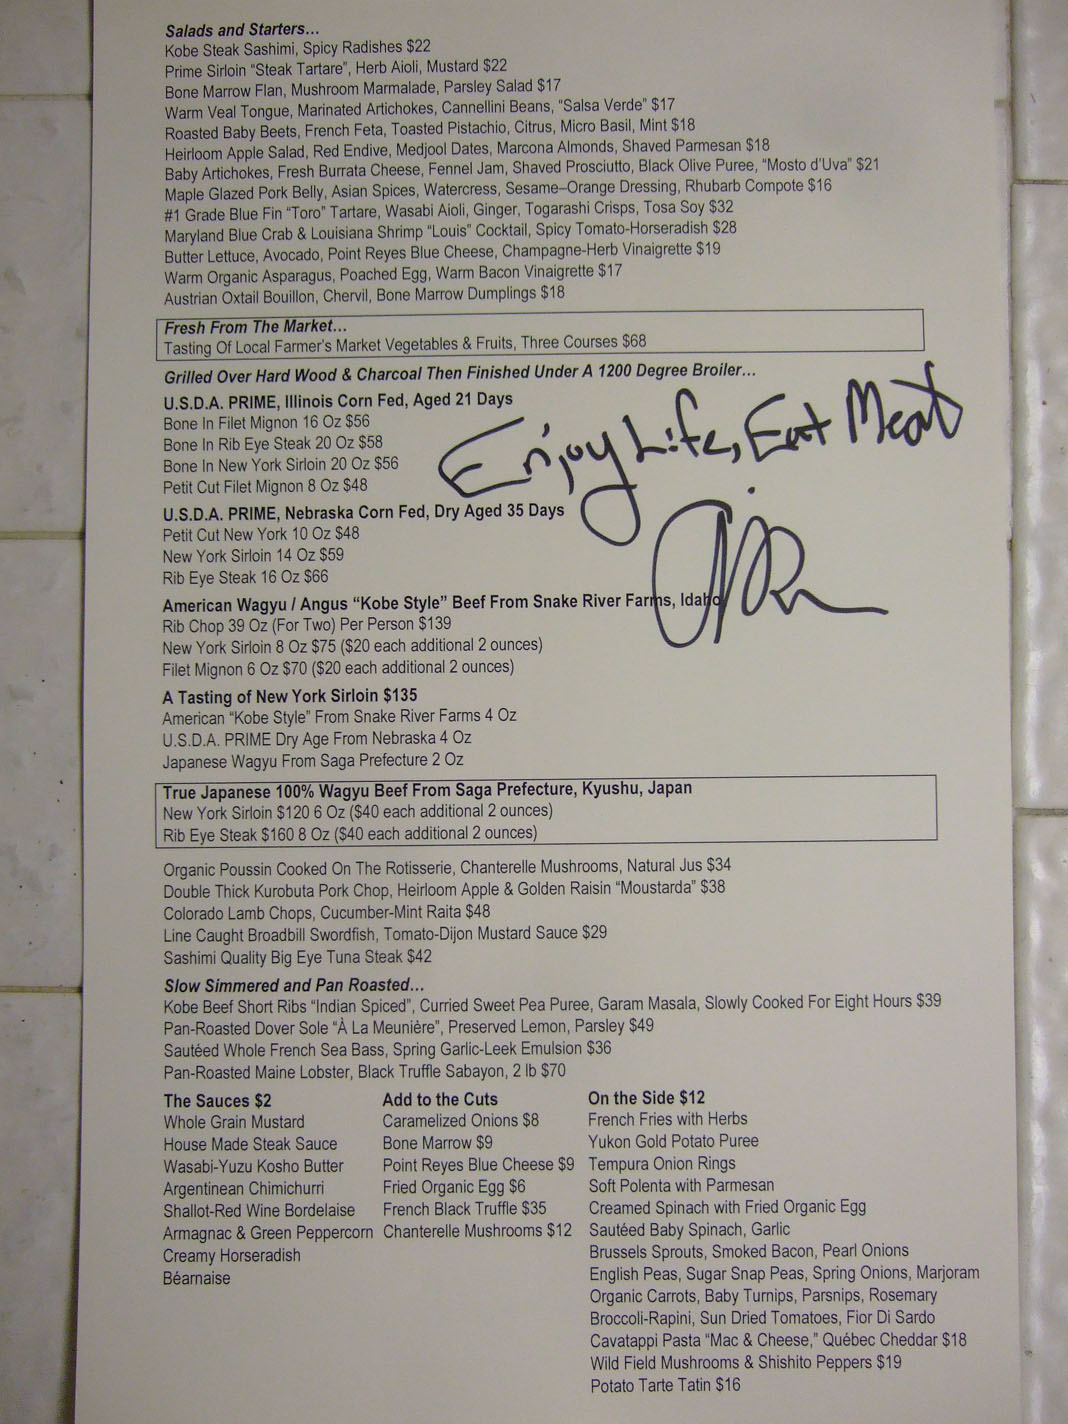 Salads and Starters...
Kobe Steak Sashimi, Spicy Radishes $22
Prime Sirloin “Steak Tartare”, Herb Aioli, Mustard $22
Bone Marrow Flan, Mushroom Marmalade, Parsley Salad $17
Warm Veal Tongue, Marinated Artichokes, Cannellini Beans, “Salsa Verde” $17
Roasted Baby Beets, French Feta, Toasted Pistachio, Citrus, Micro Basil, Mint $18
Heirloom Apple Salad, Red Endive, Medjool Dates, Marcona Almonds, Shaved Parmesan $18
Baby Artichokes, Fresh Burrata Cheese, Fennel Jam, Shaved Prosciutto, Black Olive Puree, “Mosto d'Uva” $21
Maple Glazed Pork Belly, Asian Spices, Watercress, Sesame–Orange Dressing, Rhubarb Compote $16
#1 Grade Blue Fin “Toro” Tartare, Wasabi Aioli, Ginger, Togarashi Crisps, Tosa Soy $32
Maryland Blue Crab & Louisiana Shrimp “Louis” Cocktail, Spicy Tomato-Horseradish $28
Butter Lettuce, Avocado, Point Reyes Blue Cheese, Champagne-Herb Vinaigrette $19
Warm Organic Asparagus, Poached Egg, Warm Bacon Vinaigrette $17
Austrian Oxtail Bouillon, Chervil, Bone Marrow Dumplings $18
Fresh From The Market...
Tasting Of Local Farmer's Market Vegetables & Fruits, Three Courses $68
Grilled Over Hard Wood & Charcoal Then Finished Under A 1200 Degree Broiler...
U.S.D.A. PRIME, Illinois Corn Fed, Aged 21 Days
Bone In Filet Mignon 16 Oz $56
Bone In Rib Eye Steak 20 Oz $58
Bone In New York Sirloin 20 Oz $56
Petit Cut Filet Mignon 8 Oz $48
Enjoy Life, Eat Meat
U.S.D.A. PRIME, Nebraska Corn Fed, Dry Aged 35 Days
Petit Cut New York 10 Oz $48
New York Sirloin 14 Oz $59
Rib Eye Steak 16 Oz $66
American Wagyu / Angus “Kobe Style” Beef From Snake River Farms, Idaho
Rib Chop 39 Oz (For Two) Per Person $139
New York Sirloin 8 Oz $75 ($20 each additional 2 ounces)
Filet Mignon 6 Oz $70 ($20 each additional 2 ounces)
A Tasting of New York Sirloin $135
American “Kobe Style” From Snake River Farms 4 Oz
U.S.D.A. PRIME Dry Age From Nebraska 4 Oz
Japanese Wagyu From Saga Prefecture 2 Oz
True Japanese 100% Wagyu Beef From Saga Prefecture, Kyushu, Japan
New York Sirloin $120 6 Oz ($40 each additional 2 ounces)
Rib Eye Steak $160 8 Oz ($40 each additional 2 ounces)
Organic Poussin Cooked On The Rotisserie, Chanterelle Mushrooms, Natural Jus $34
Double Thick Kurobuta Pork Chop, Heirloom Apple & Golden Raisin “Moustarda” $38
Colorado Lamb Chops, Cucumber-Mint Raita $48
Line Caught Broadbill Swordfish, Tomato-Dijon Mustard Sauce $29
Sashimi Quality Big Eye Tuna Steak $42
Slow Simmered and Pan Roasted...
Kobe Beef Short Ribs “Indian Spiced”, Curried Sweet Pea Puree, Garam Masala, Slowly Cooked For Eight Hours $39
Pan-Roasted Dover Sole “À La Meunière”, Preserved Lemon, Parsley $49
Sautéed Whole French Sea Bass, Spring Garlic-Leek Emulsion $36
Pan-Roasted Maine Lobster, Black Truffle Sabayon, 2 lb $70
The Sauces $2
Whole Grain Mustard
House Made Steak Sauce
Wasabi-Yuzu Kosho Butter
Argentinean Chimichurri
Shallot-Red Wine Bordelaise
Armagnac & Green Peppercorn
Creamy Horseradish
Béarnaise
Add to the Cuts
Caramelized Onions $8
Bone Marrow $9
Point Reyes Blue Cheese $9
Fried Organic Egg $6
French Black Truffle $35
Chanterelle Mushrooms $12
On the Side $12
French Fries with Herbs
Yukon Gold Potato Puree
Tempura Onion Rings
Soft Polenta with Parmesan
Creamed Spinach with Fried Organic Egg
Sautéed Baby Spinach, Garlic
Brussels Sprouts, Smoked Bacon, Pearl Onions
English Peas, Sugar Snap Peas, Spring Onions, Marjoram
Organic Carrots, Baby Turnips, Parsnips, Rosemary
Broccoli-Rapini, Sun Dried Tomatoes, Fior Di Sardo
Cavatappi Pasta “Mac & Cheese,” Québec Cheddar $18
Wild Field Mushrooms & Shishito Peppers $19
Potato Tarte Tatin $16